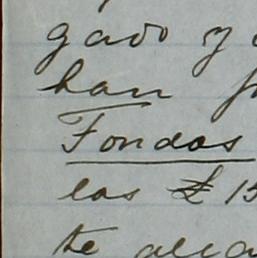 gado y
han
Fondos
las £ 15
te